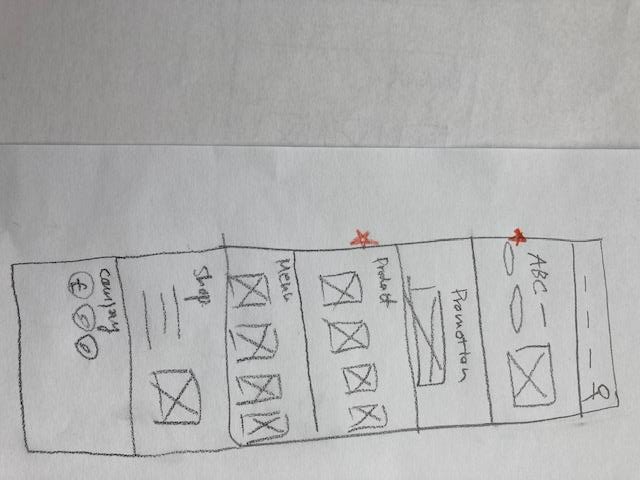 ABC
Promotion
Product
Menu
Shop
company
f